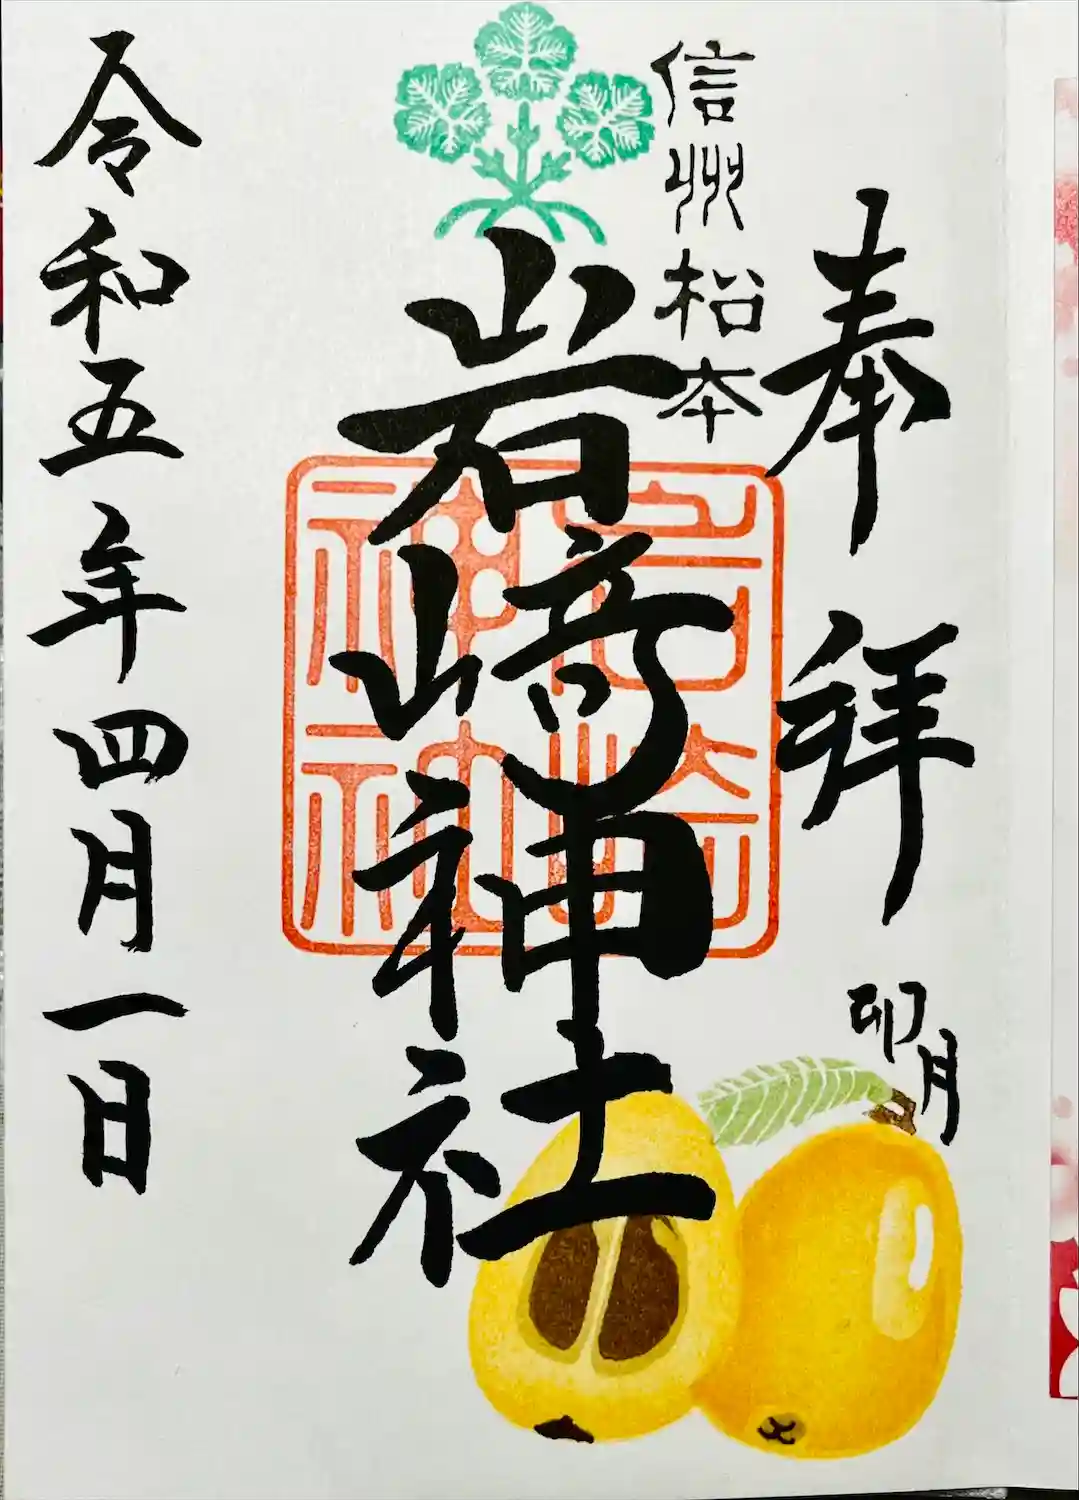 奉拝
卯月
信州松本
岩崎神社
岩崎神社
令和五年四月一日